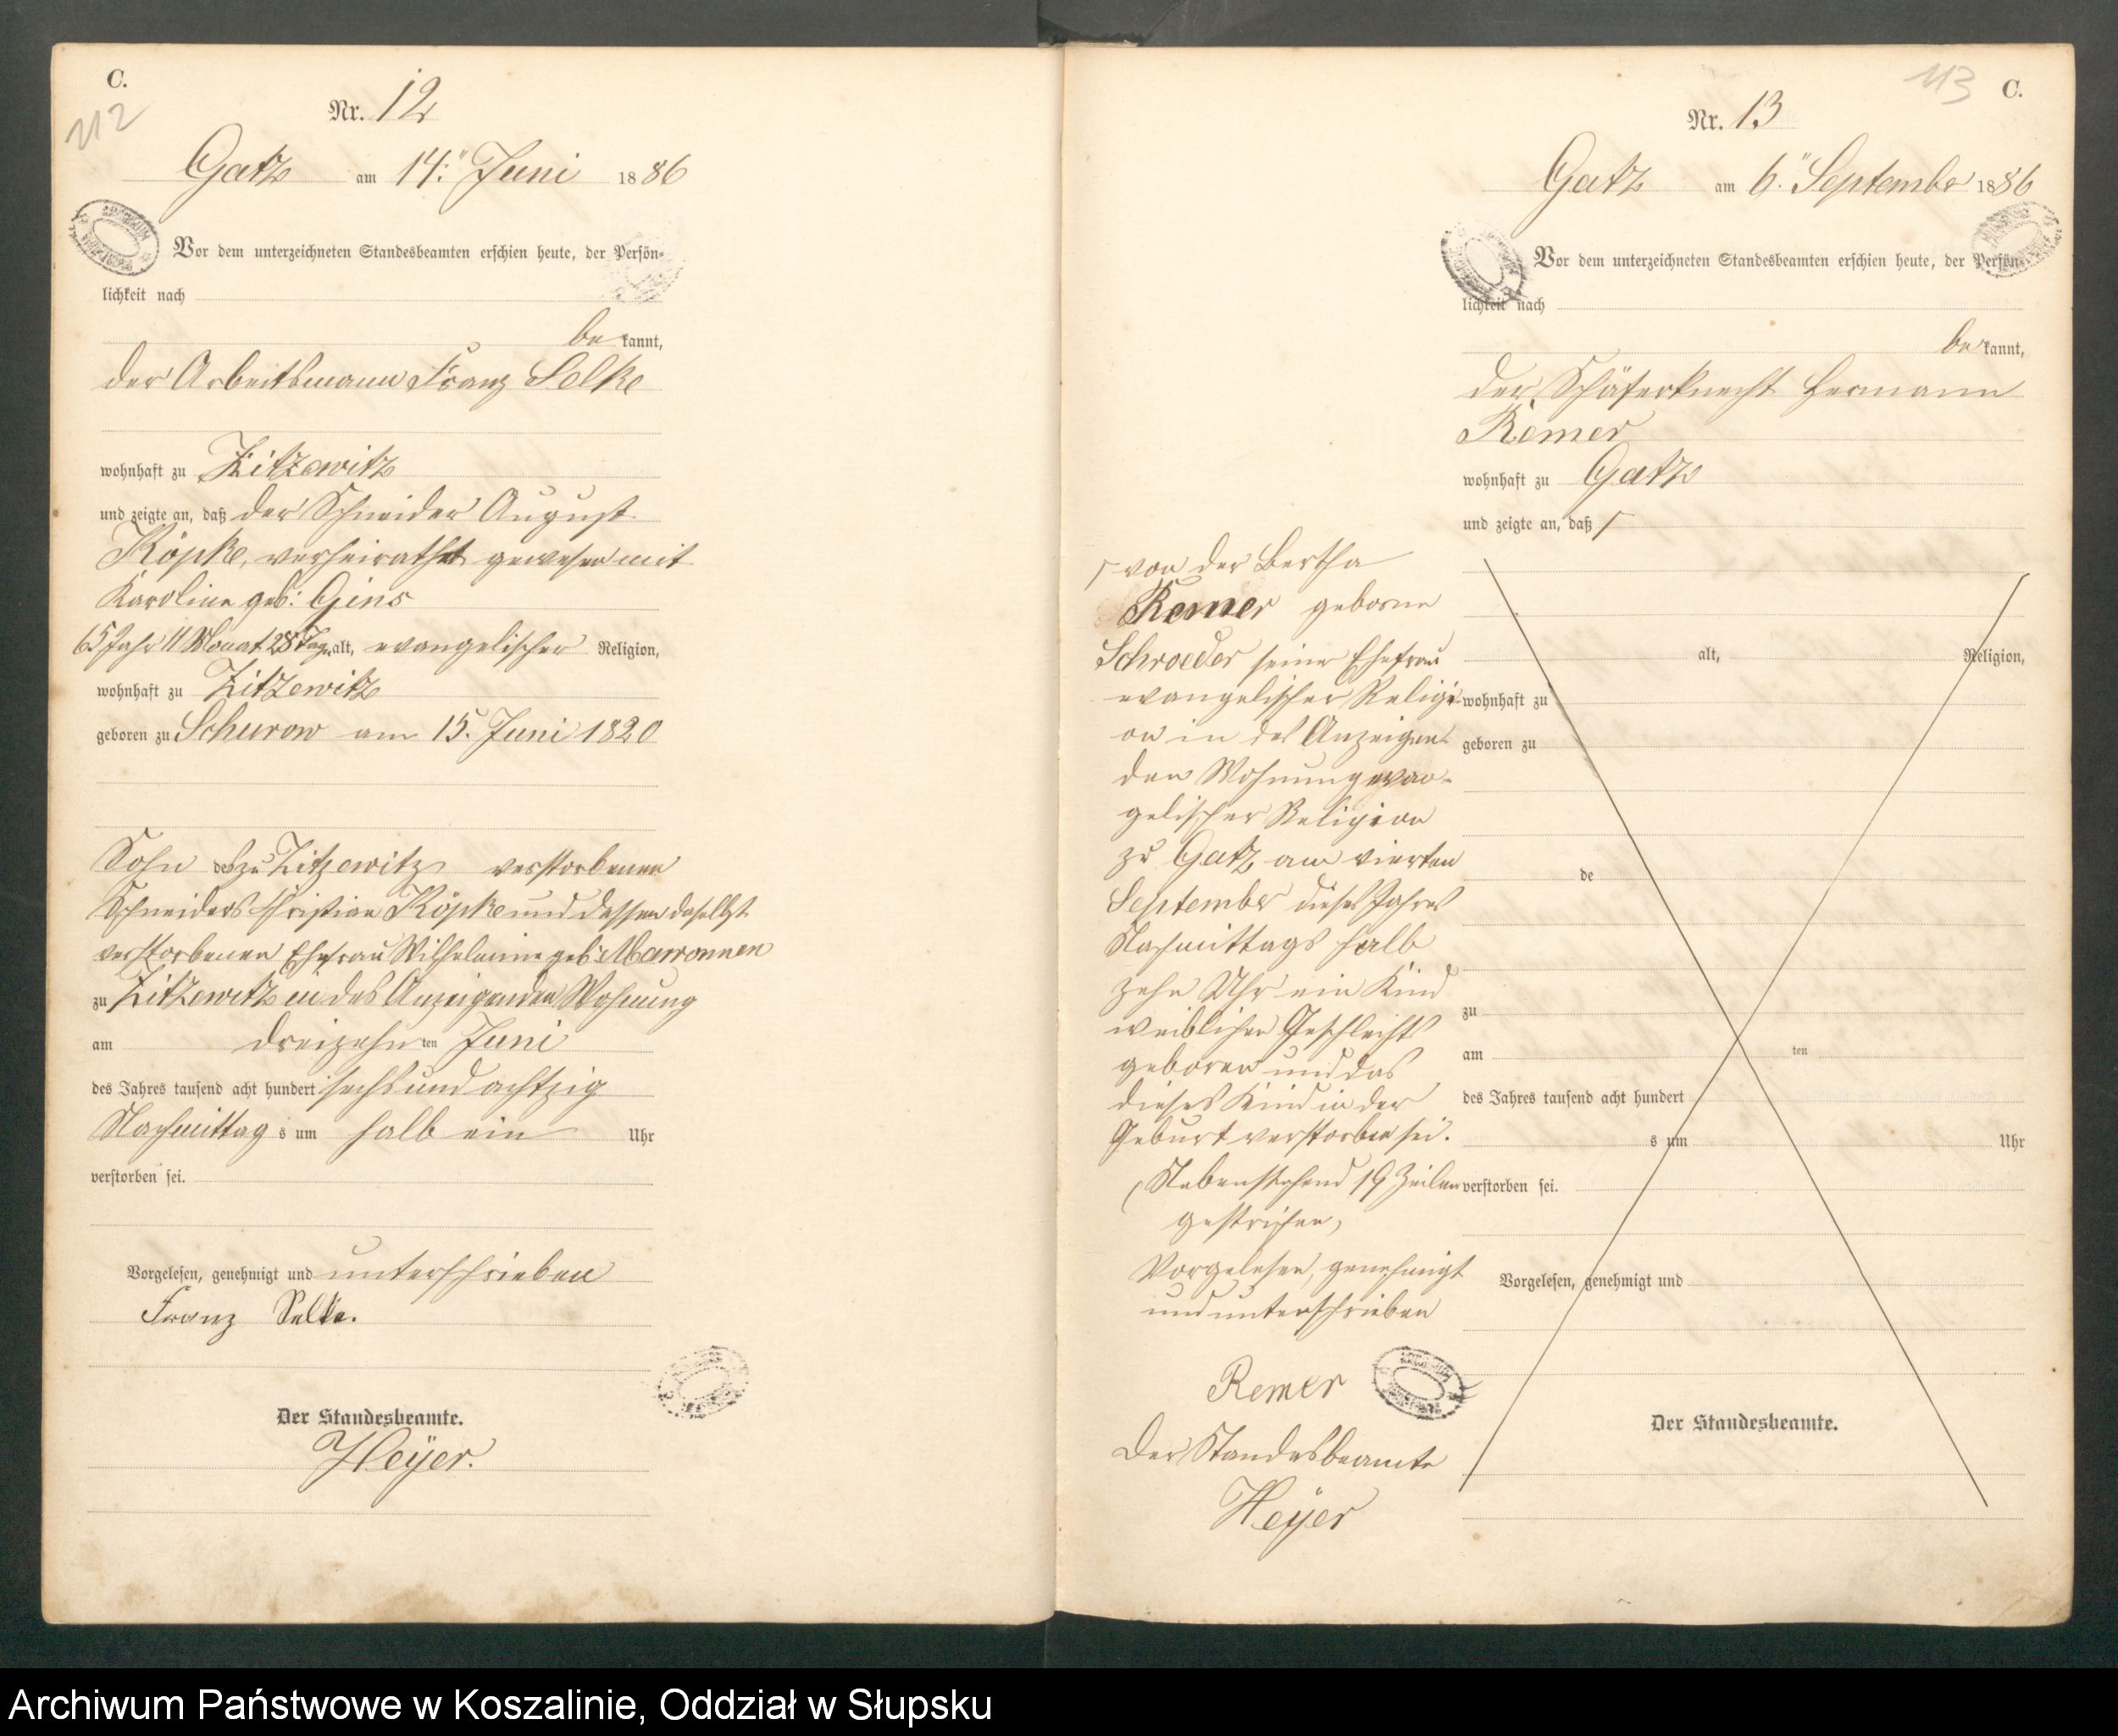 C.
112
Nr. 12
Gatz am 14.ten Juni 1886
Vor dem unterzeichneten Standesbeamten erschien heute, der Persön-
lichkeit nach
be kannt,
der Arbeitsmann Franz Selke
wohnhaft zu Zitzewitz
und zeigte an, daß der Schneider August
Köpke, verheirathet gewesen mit
Karoline geb: Gens
65 Jahr 11 Monat 28 Tage alt, evangelischer Religion,
wohnhaft zu Zitzewitz
geboren zu Schurow am 15. Juni 1820
Sohn des zu Zitzewitz verstorbenen
Schneiders Christian Köpke und dessen daselbst
verstorbenen Ehefrau Wilhelmine geb:
zu Zitzewitz in des Anzeigenden Wohnung
am dreizehn ten Juni
des Jahres tausend acht hundert sechs und achtzig
Nachmittag s um halb ein Uhr
verstorben sei.
Vorgelesen, genehmigt und unterschrieben
Franz Selke.
Der Standesbeamte.
Heyer.
113
C.
Nr. 13
Gatz am 6.ten September 1886
Vor dem unterzeichneten Standesbeamten erschien heute, der Persön-
lichkeit nach
be kannt,
der Schäferknecht Hermann
Remer
wohnhaft zu Gatz
und zeigte an, daß
von der Bertha
Remer geborne
Schroeder seiner Ehefrau
evangelischer Religi-
on in des Anzeigen-
den Wohnung evan-
gelischer Religion
zu Gatz am vierten
September dieses Jahres
Nachmittags halb
zehn Uhr ein Kind
weiblichen Geschlechts
geboren und das
dieses Kind in der
Geburt verstorben sei.
Nebenstehend 19 Zeilen
gestrichen,
Vorgelesen, genehmigt
und unterschrieben
Remer
Der Standesbeamte
Heyer
alt, Religion,
wohnhaft zu
geboren zu
de
zu
am ten
des Jahres tausend acht hundert
s um Uhr
verstorben sei.
Vorgelesen, genehmigt und
Der Standesbeamte.
Archiwum Państwowe w Koszalinie, Oddział w Słupsku